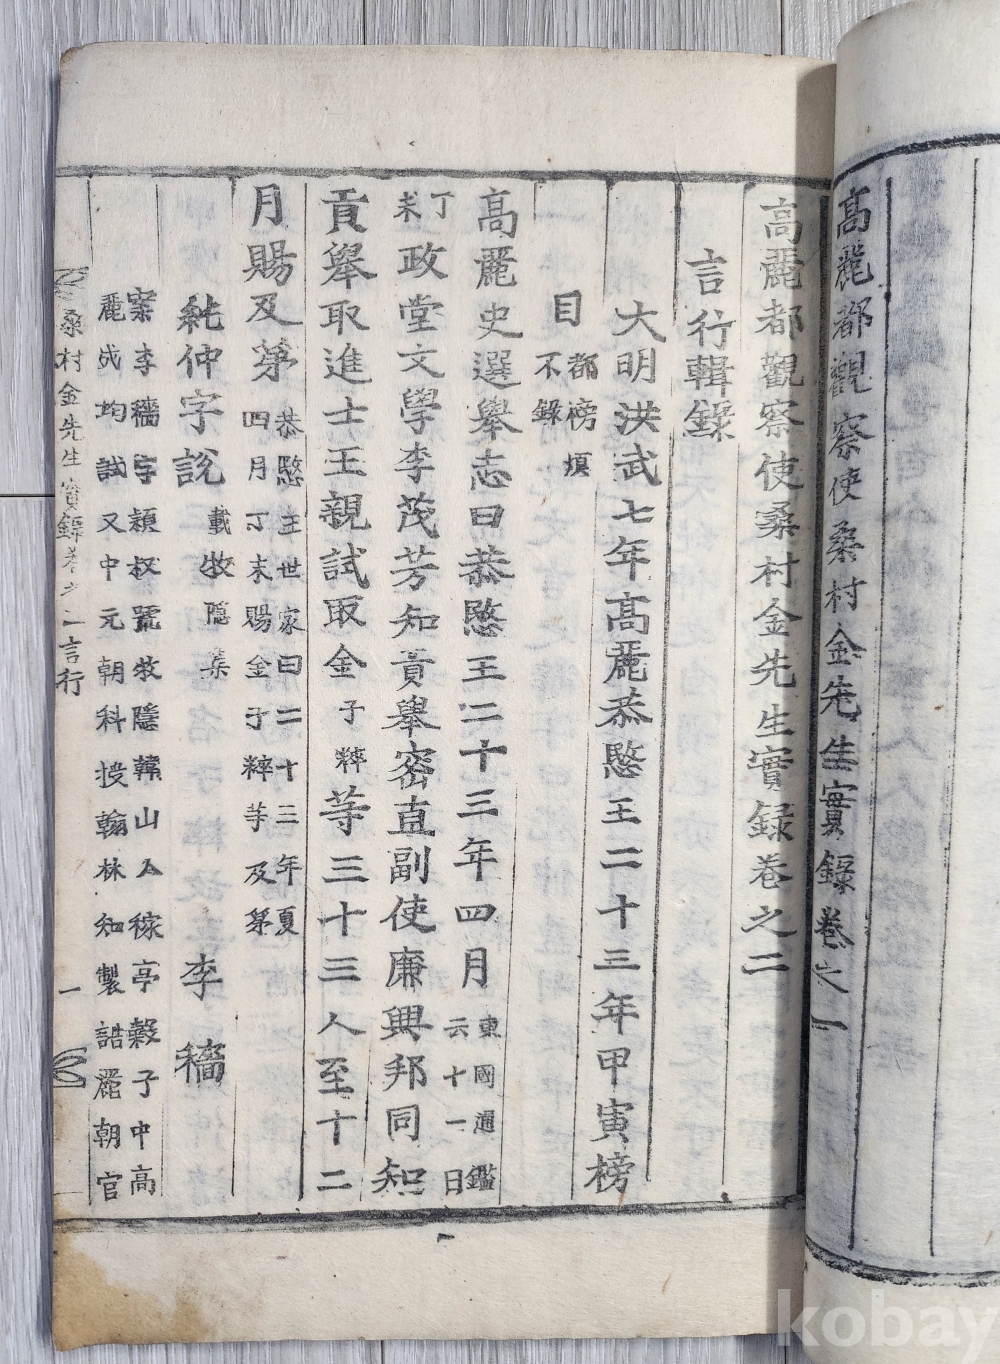 高麗都觀察使桑村金先生實錄卷之一
高麗都觀察使桑村金先生實錄卷之二
言行輯錄
大明洪武七年高麗恭愍王二十三年甲寅榜
目
都榜煩
不錄
高麗史選舉志曰恭愍王二十三年四月
東國通鑑
云十一日
丁
未
政堂文學李茂芳知貢舉密直副使廉興邦同知
貢舉取進士王親試取金子粹等三十三人至十二
月賜及第
恭愍王世家曰二十三年夏
四月丁未賜金子粹等及第
純仲字說
載牧隱集
李穡
案李穡字穎叔號牧隱韓山人稼亭穀子中高
麗成均試又中元朝科授翰林知製誥麗朝官
桑村金先生實錄卷之二言行
一
kobay